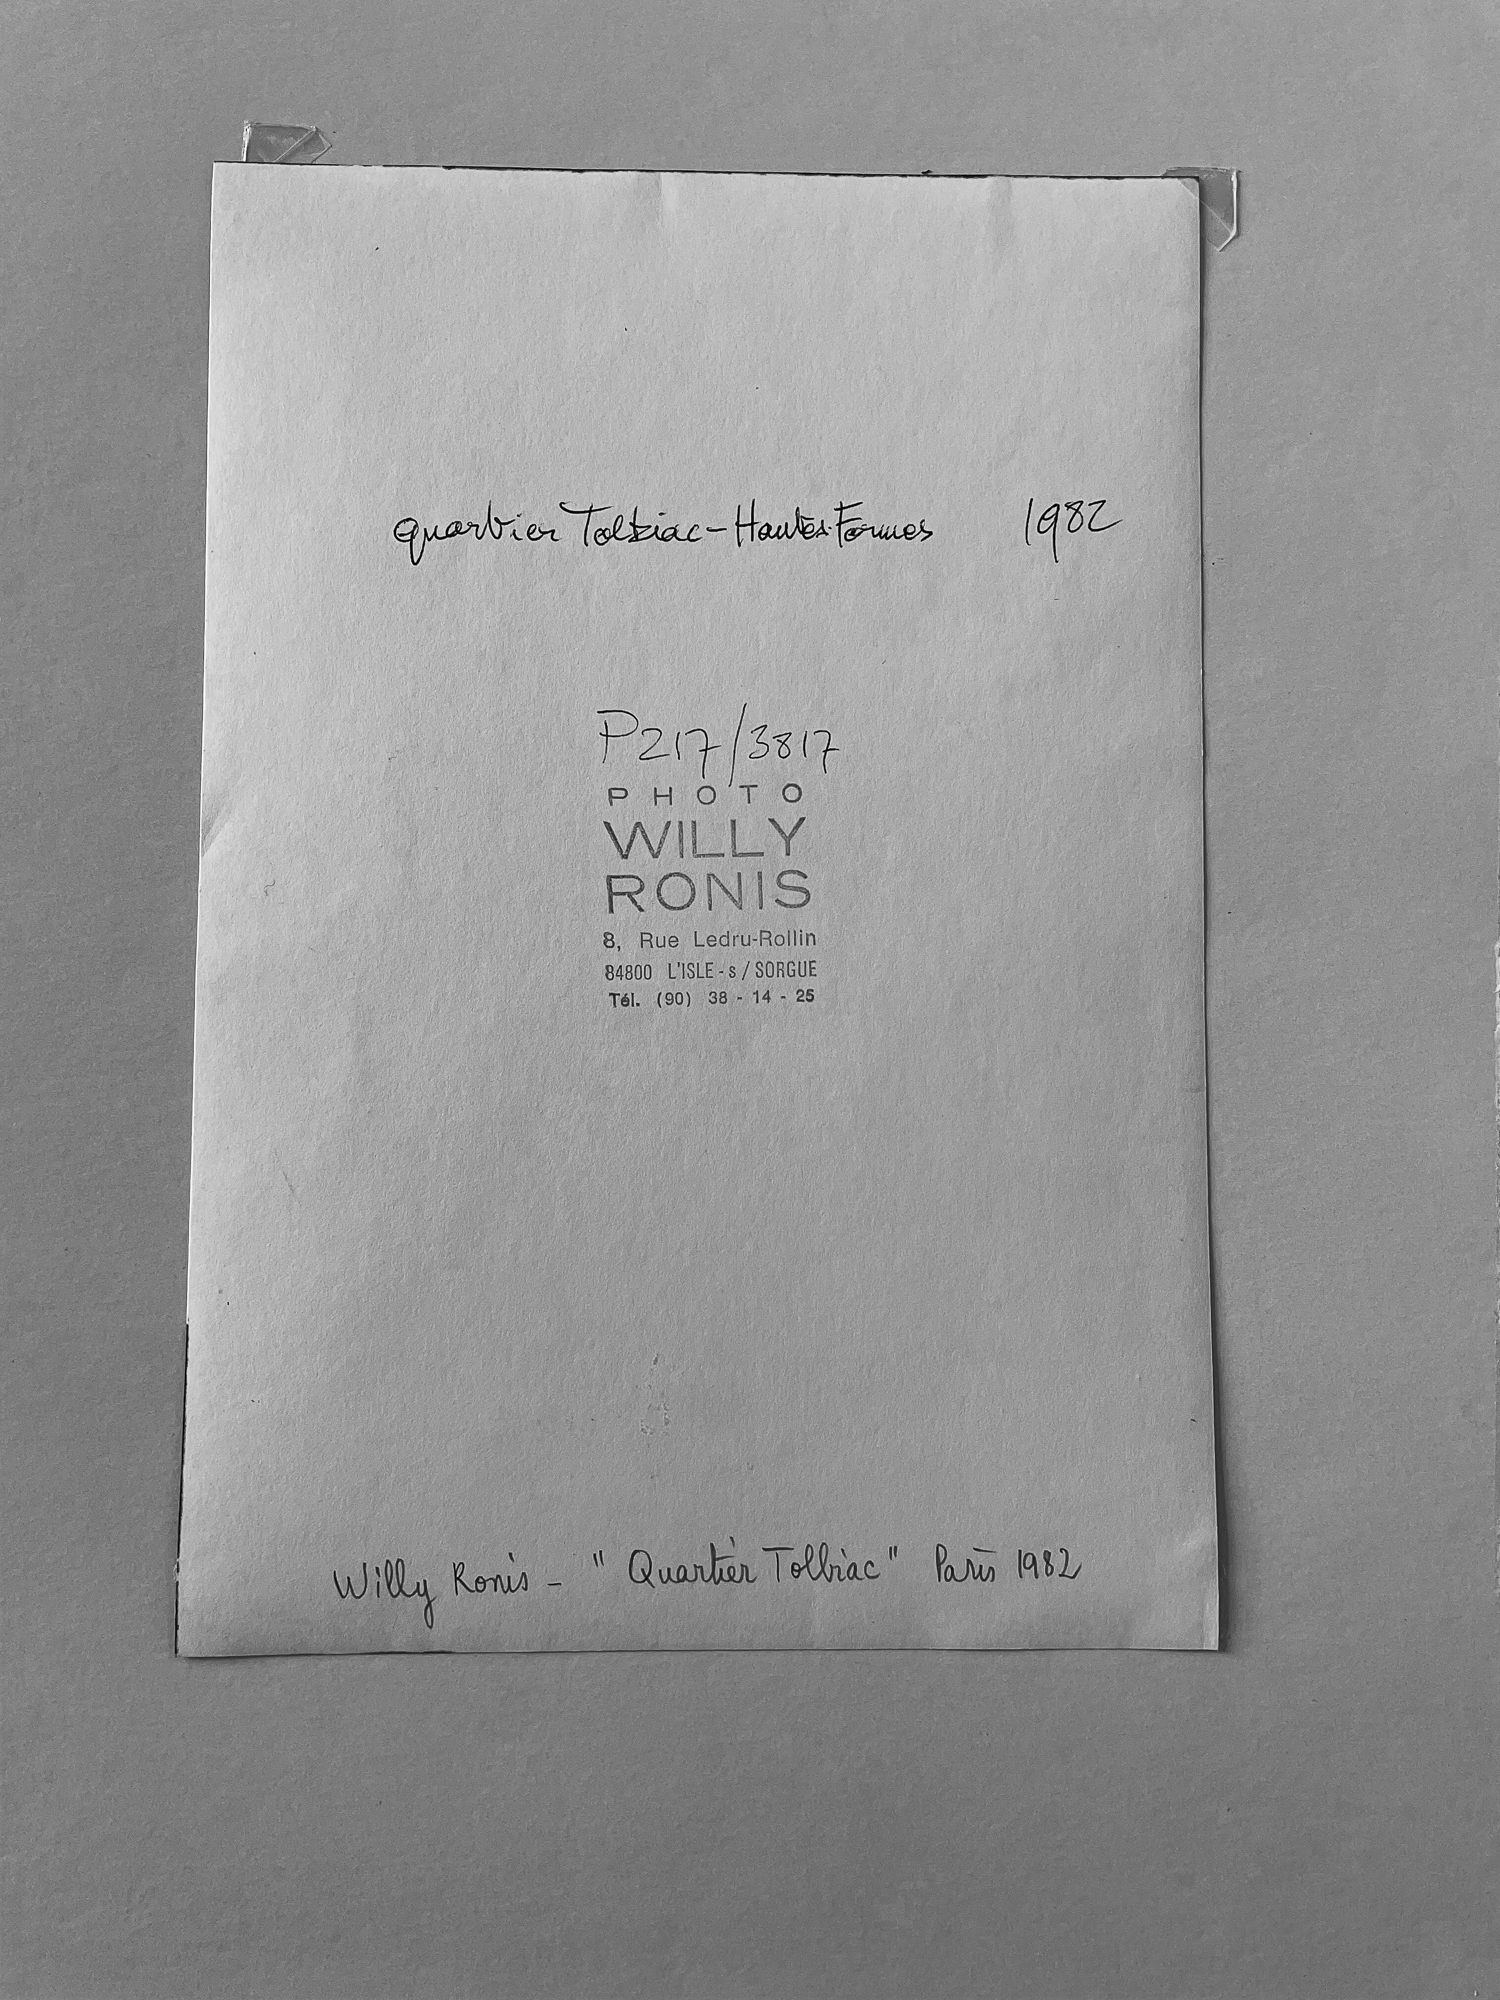 quartier Tolbiac-Hautes Formes 1982
P217/3817
PHOTO
WILLY
RONIS
8, Rue Ledru-Rollin
84800 L'ISLE-s/SORGUE
Tél. (90) 38-14-25
Willy Ronis - "Quartier Tolbiac" Paris 1982